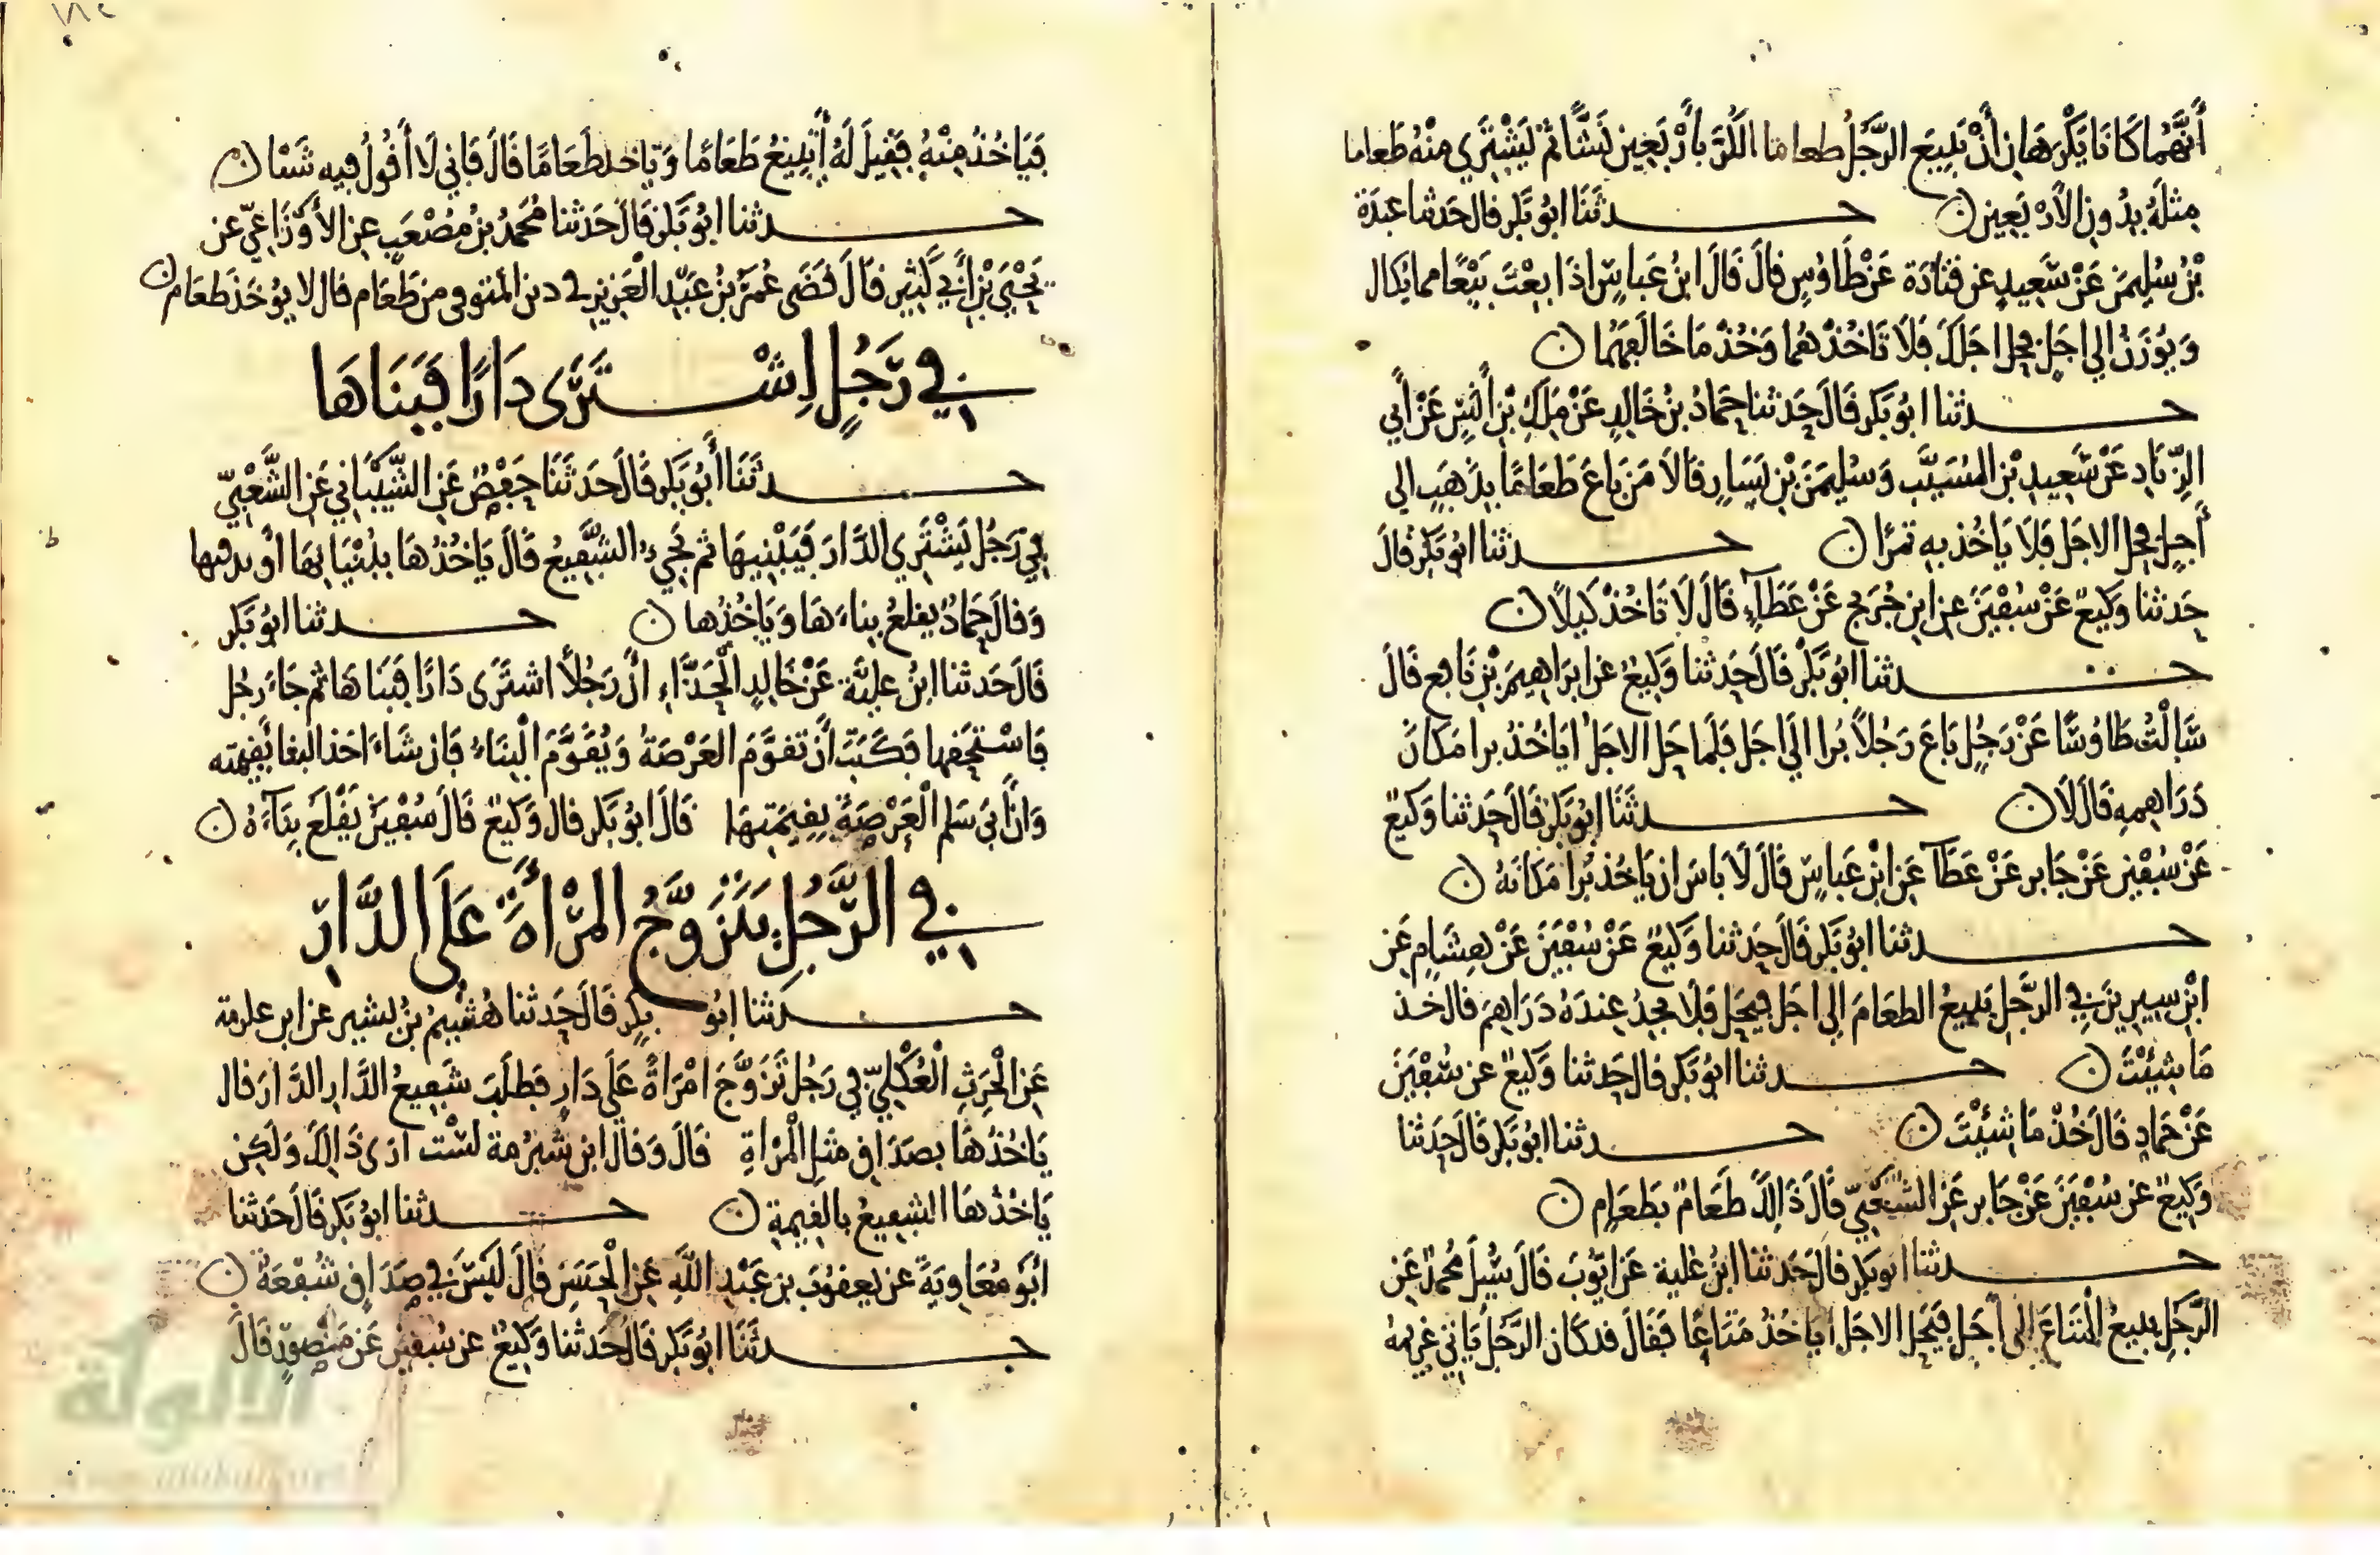 أنهما كانا يكرهان أن يبيع الرجل طعاما الكر بأربعين نسئا ثم يشتري منه طعاما
مثله بدون الأربعين حدثنا ابو بكر قال حدثنا عبدة
بن سليمن عن سعيد عن قتادة عن طاوس قال قال ابن عباس اذا بعت بيعا مما يكال
ويوزن الى اجل فحل اجلك فلا تاخذهما وخذ ما خالفهما
حدثنا ابو بكر قال حدثنا حماد بن خالد عن ملك بن انس عن أبي
الزناد عن سعيد بن المسيب وسليمن بن يسار قالا من باع طعاما بذهب الى
أجل فحل الاجل فلا ياخذ به تمرا حدثنا ابو بكر قال
حدثنا وكيع عن سفين عن ابن جريج عن عطاء قال لا تاخذ كيلا
حدثنا ابو بكر قال حدثنا وكيع عن ابراهيم بن نافع قال
سالت طاوسا عن رجل باع رجلا برا الى اجل فلما حل الاجل اياخذ برا مكان
دراهمه قال لا حدثنا ابو بكر قال حدثنا وكيع
عن سفين عن جابر عن عطآ عن ابن عباس قال لا باس ان ياخذ برا مكانه
حدثنا ابو بكر قال حدثنا وكيع عن سفين عن هشام عن
ابن سيرين في الرجل يبيع الطعام الى اجل فيحل فلا يجد عنده دراهم قال خذ
ما شئت حدثنا ابو بكر قال حدثنا وكيع عن سفين
عن حماد قال خذ ما شئت حدثنا ابو بكر قال حدثنا
وكيع عن سفين عن جابر عن الشعبي قال ذالك طعام بطعام
حدثنا ابو بكر قال حدثنا ابن علية عن ايوب قال سئل محمد عن
الرجل يبيع المتاع الى أجل فيحل الاجل اياخذ متاعا فقال قد كان الرجل ياتي غريمه
فياخذ منه فقيل له أيبيع طعاما وياخذ طعاما قال فاني لا أقول فيه شئا
حدثنا ابو بكر قال حدثنا محمد بن مصعب عن الأوزاعي عن
يحيى بن أبي كثير قال قضى عمر بن عبد العزيز في دين المتوفى من طعام قال لا يوخذ طعام
في رجل اشترى دارا فبناها
حدثنا أبو بكر قال حدثنا حفص عن الشيباني عن الشعبي
في رجل يشتري الدار فيبنيها ثم يجيء الشفيع قال ياخذها ببنيانها أو
وقال حماد يقلع بناءها وياخذها حدثنا ابو بكر
قال حدثنا ابن علية عن خالد الحذاء ان رجلا اشترى دارا فبناها ثم جاء رجل
فاستحقها فكتب أن تقوم العرصة ويقوم البناء فان شاء اخذ البنا بقيمته
وان ابى سلم العرصة بقيمتها قال ابو بكر قال وكيع قال سفين يقلع بناءه
في الرجل يتزوج المرأة على الدار
حدثنا ابو بكر قال حدثنا هشيم بن بشير عن ابن علرمة
عن الحرث العكلي في رجل تزوج امراة على دار فطلب شفيع الدار الدار قال
ياخذها بصداق مثل المراة قال وقال ابن شبرمة لست ارى ذالك ولكن
ياخذها الشفيع بالقيمة حدثنا ابو بكر قال حدثنا
ابو معاوية عن يعقوب بن عبد الله عن الحسن قال ليس في صداق شفعة
حدثنا ابو بكر قال حدثنا وكيع عن سفين عن منصور قال
الألوكة